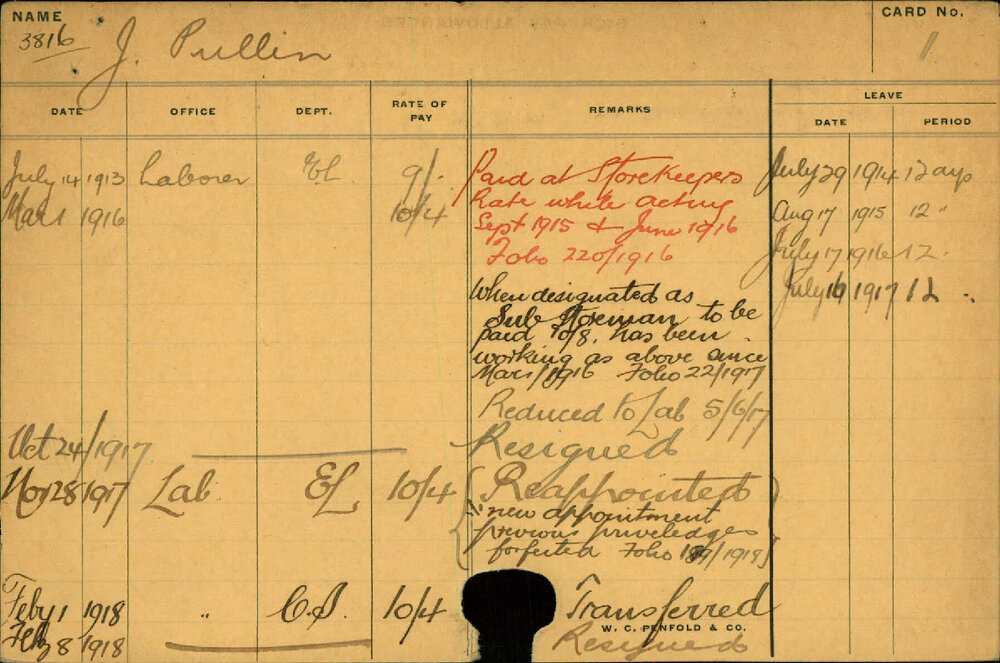 NAME
3816
J. Pullin
CARD No.
1
DATE OFFICE DEPT. RATE OF PAY REMARKS LEAVE
DATE PERIOD
July 14 1913 Laborer EL 9/-
Mar 1 1916 10/4
Paid at Storekeepers
Rate while acting
Sept 1915 & June 1916
Folio 220/1916
July 29 1914 12 days
Aug 17 1915 12 "
July 17 1916 12 "
July 16 1917 12 "
When designated as
Sub Storeman to be
paid 10/8. has been
working as above since
Mar 1/1916 Folio 22/1917
Reduced to Lab 5/6/17
Oct 24/1917 Resigned
Nov 28 1917 Lab EL 10/4 Reappointed
"new appointment
previous priviledges
forfeited Folio /1918
Feby 1 1918 " C.S. 10/4 Transferred
W. C. PENFOLD & CO.
Feb 8 1918 Resigned